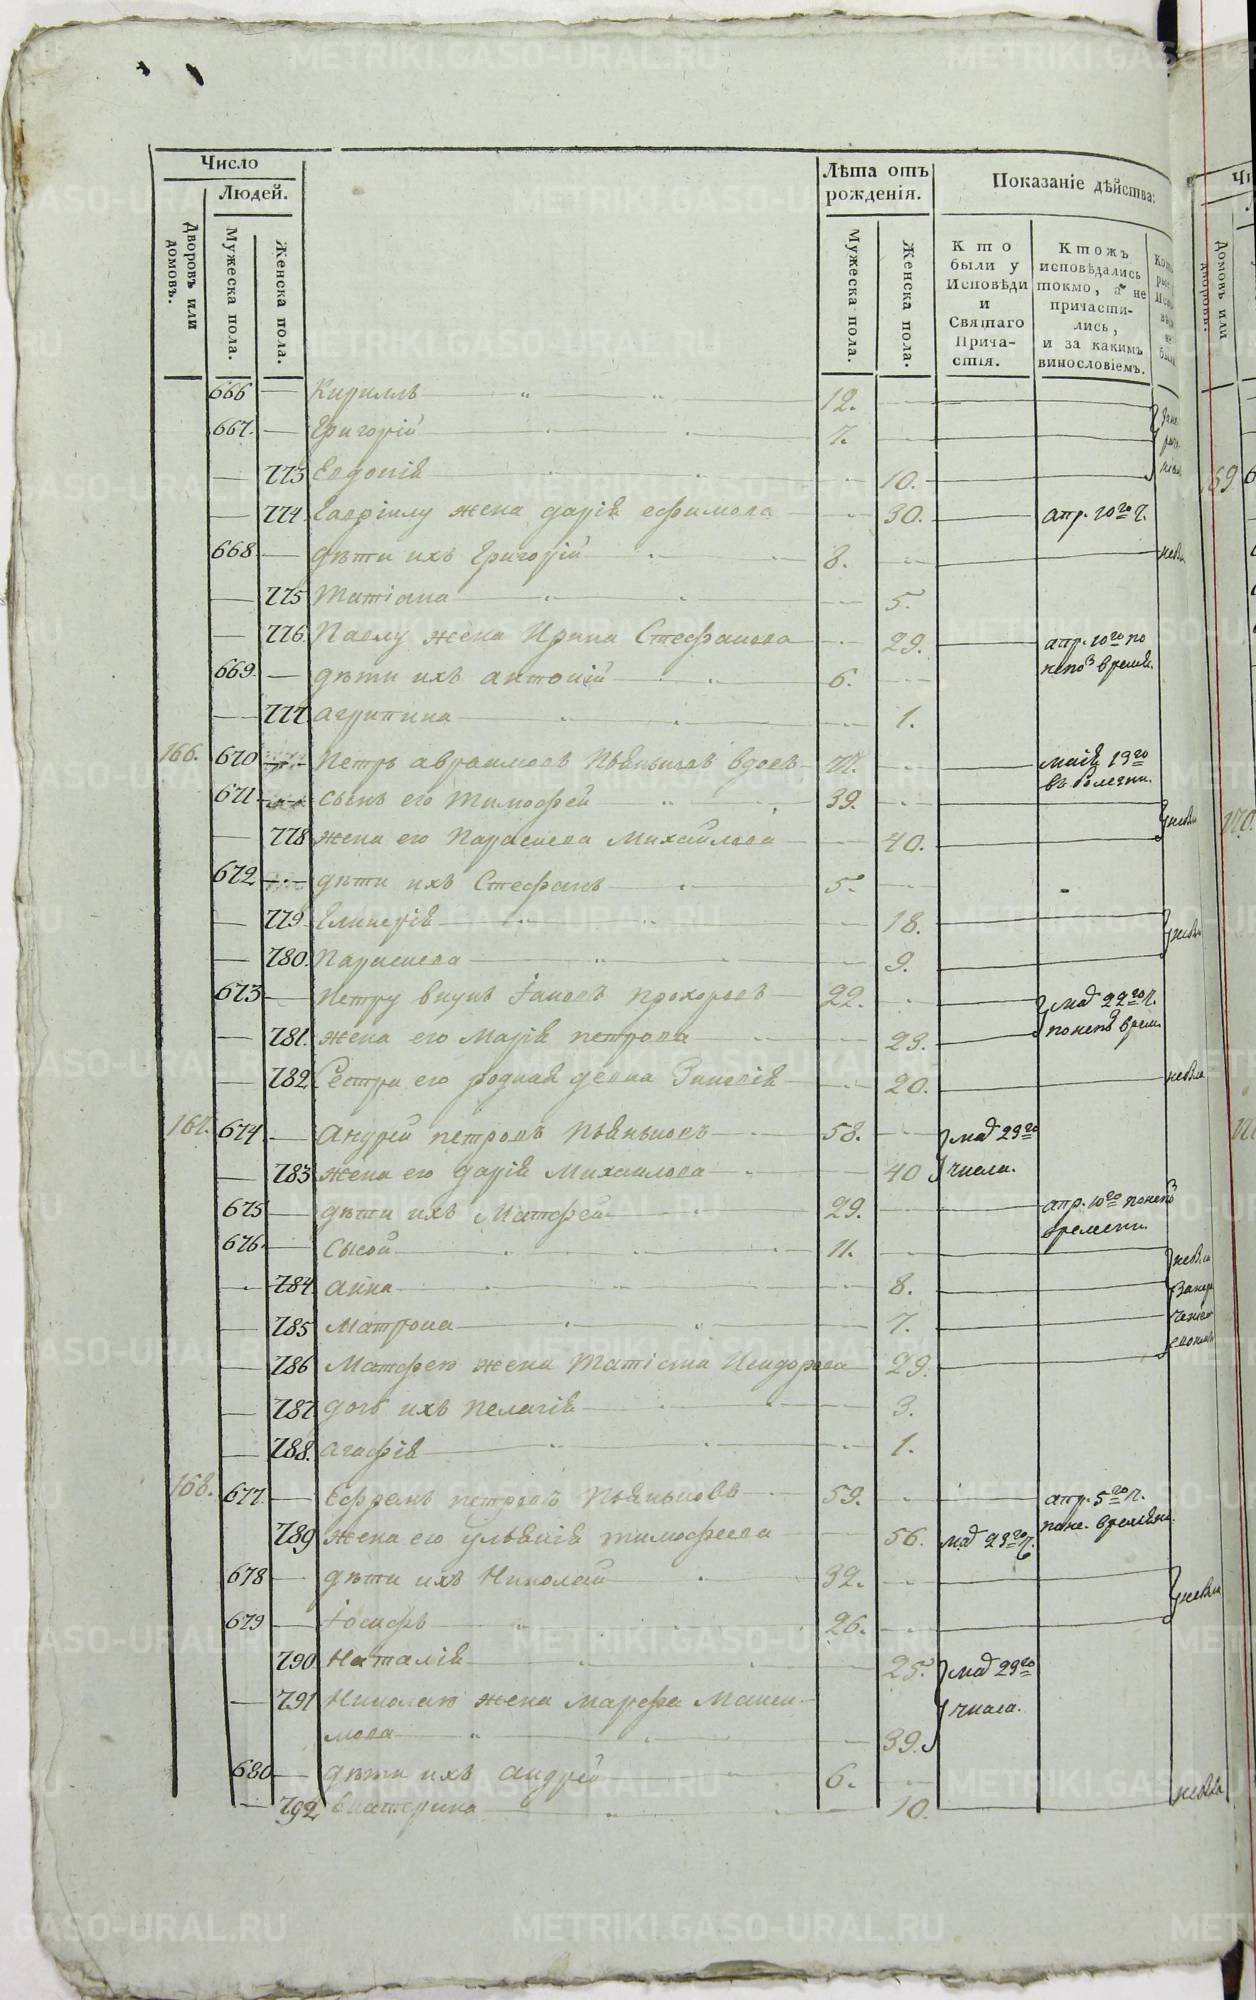 Число
Людей.
Дворовъ или домовъ.
Мужеска пола.
Женска пола.
Лѣта отъ рожденія.
Мужеска пола.
Женска пола.
Показаніе дѣйства:
Кто были у Исповѣди и Святаго Прича-стія.
Ктожъ исповѣдались токмо, а не причасти-лись, и за какимъ винословіемъ.
666 — Кириллъ 12.
667. — Григорій 7.
— 773 Евдокія 10.
— 774. Гавріилу жена дарія ефимова 30. апр. 10го ч.
668 — дѣти ихъ Григорій 8.
— 775 Татіана 5.
— 776. Павлу жена Ирина Стефанова 29. апр. 10го по
669. — дѣти ихъ антоній 6. времян.
— 777. агрипина 1.
166. 670 Петръ авраамовъ Пьянковъ вдовъ 77. маія 13го
въ болезни.
671 сынъ его Тимофей 39.
— 778 жена его Параскева Михайлова 40.
672 дѣти ихъ Стефанъ 5.
— 779 Гликерія 18.
— 780. Параскева 9.
673 — Петру внукъ Іаковъ прохоровъ 22. маія 22го ч.
— 781. жена его Марія петрова 23.
— 782 Сестра его родная девка Зиновія 20.
167. 674 — Андрей петровъ Пьянковъ 58. маія 23го
— 783 жена его дарія Михаилова 40 числа.
675 — дѣти ихъ Матфей 29. апр. 10го
времени.
676. — Сысой 11.
784 анна 8.
— 785 Матрона 7.
— 786 Матфею жена Татіана Исидорова 29.
— 787 дочь ихъ пелагія 3.
— 788. агафія 1.
168. 677 — Ефремъ петровъ Пьянковъ 59. апр. 5го ч.
789 жена его ульянія тимофеева 56. маія 23го ч.
678 — дѣти ихъ Николай 32.
679 — Іосифъ 26.
790 Наталія 25. маія 23го
— 791 Николаю жена марфа Макси-
числа.
мова 39.
680 — дѣти ихъ андрей 6.
— 792 Екатерина 10.
Домовъ или дворовъ.
METRIKI.GASO-URAL.RU